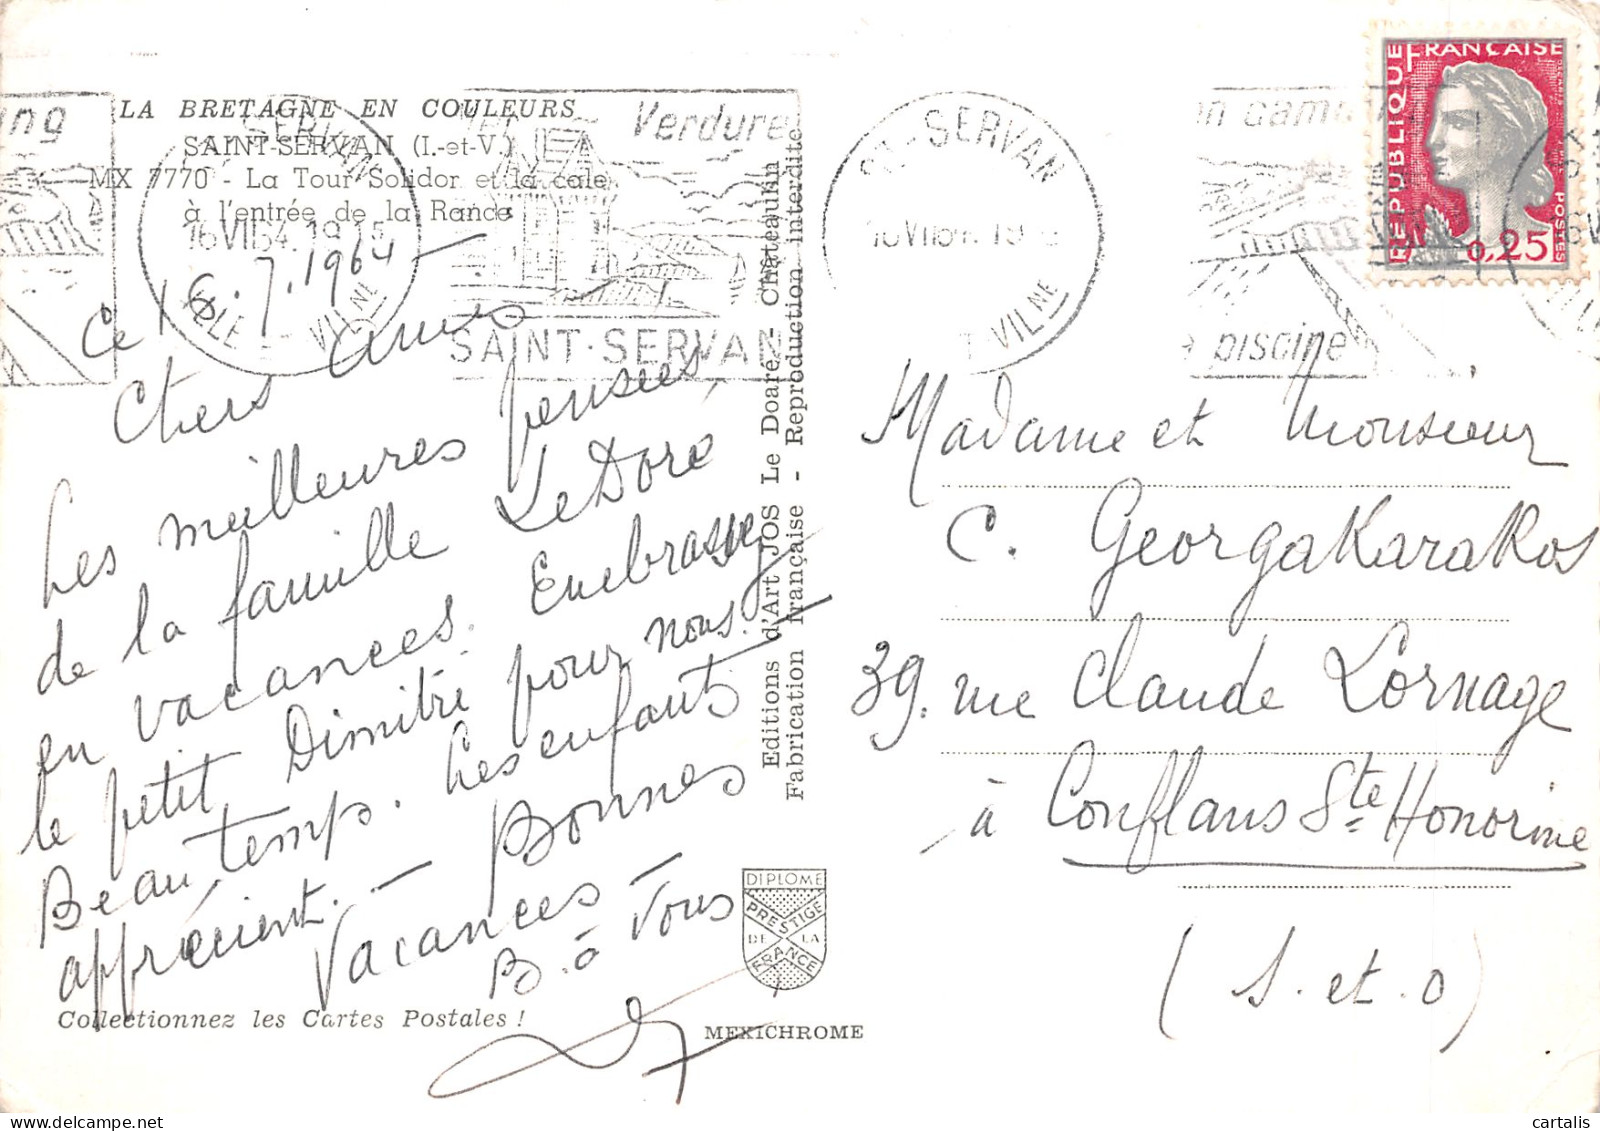 LA BRETAGNE EN COULEURS
SAINT-SERVAN (I.-et-V.)
MX 7770 - La Tour Solidor et la cale
à l'entrée de la Rance
Verdure
16 VII 64. 19 15
SAINT-SERVAN
Ce 16.7.1964 -
Chers Amis -
Les meilleures pensées
de la famille Le Doré
en vacances. Embrassez
le petit Dimitri pour nous.
Beau temps. Les enfants
apprécient. - Bonnes
Vacances -
B. à Tous
Collectionnez les Cartes Postales !
Editions d'Art JOS Le Doaré - Chateaulin
Fabrication Française - Reproduction interdite
DIPLOME
PRESTIGE
DE LA
FRANCE
MEXICHROME
ST-SERVAN
piscine
REPUBLIQUE FRANÇAISE
POSTES
0,25
Madame et Monsieur
C. Georgakarakos
39. rue Claude Lornage
à Conflans Ste Honorine
(S. et. O)
cartalis